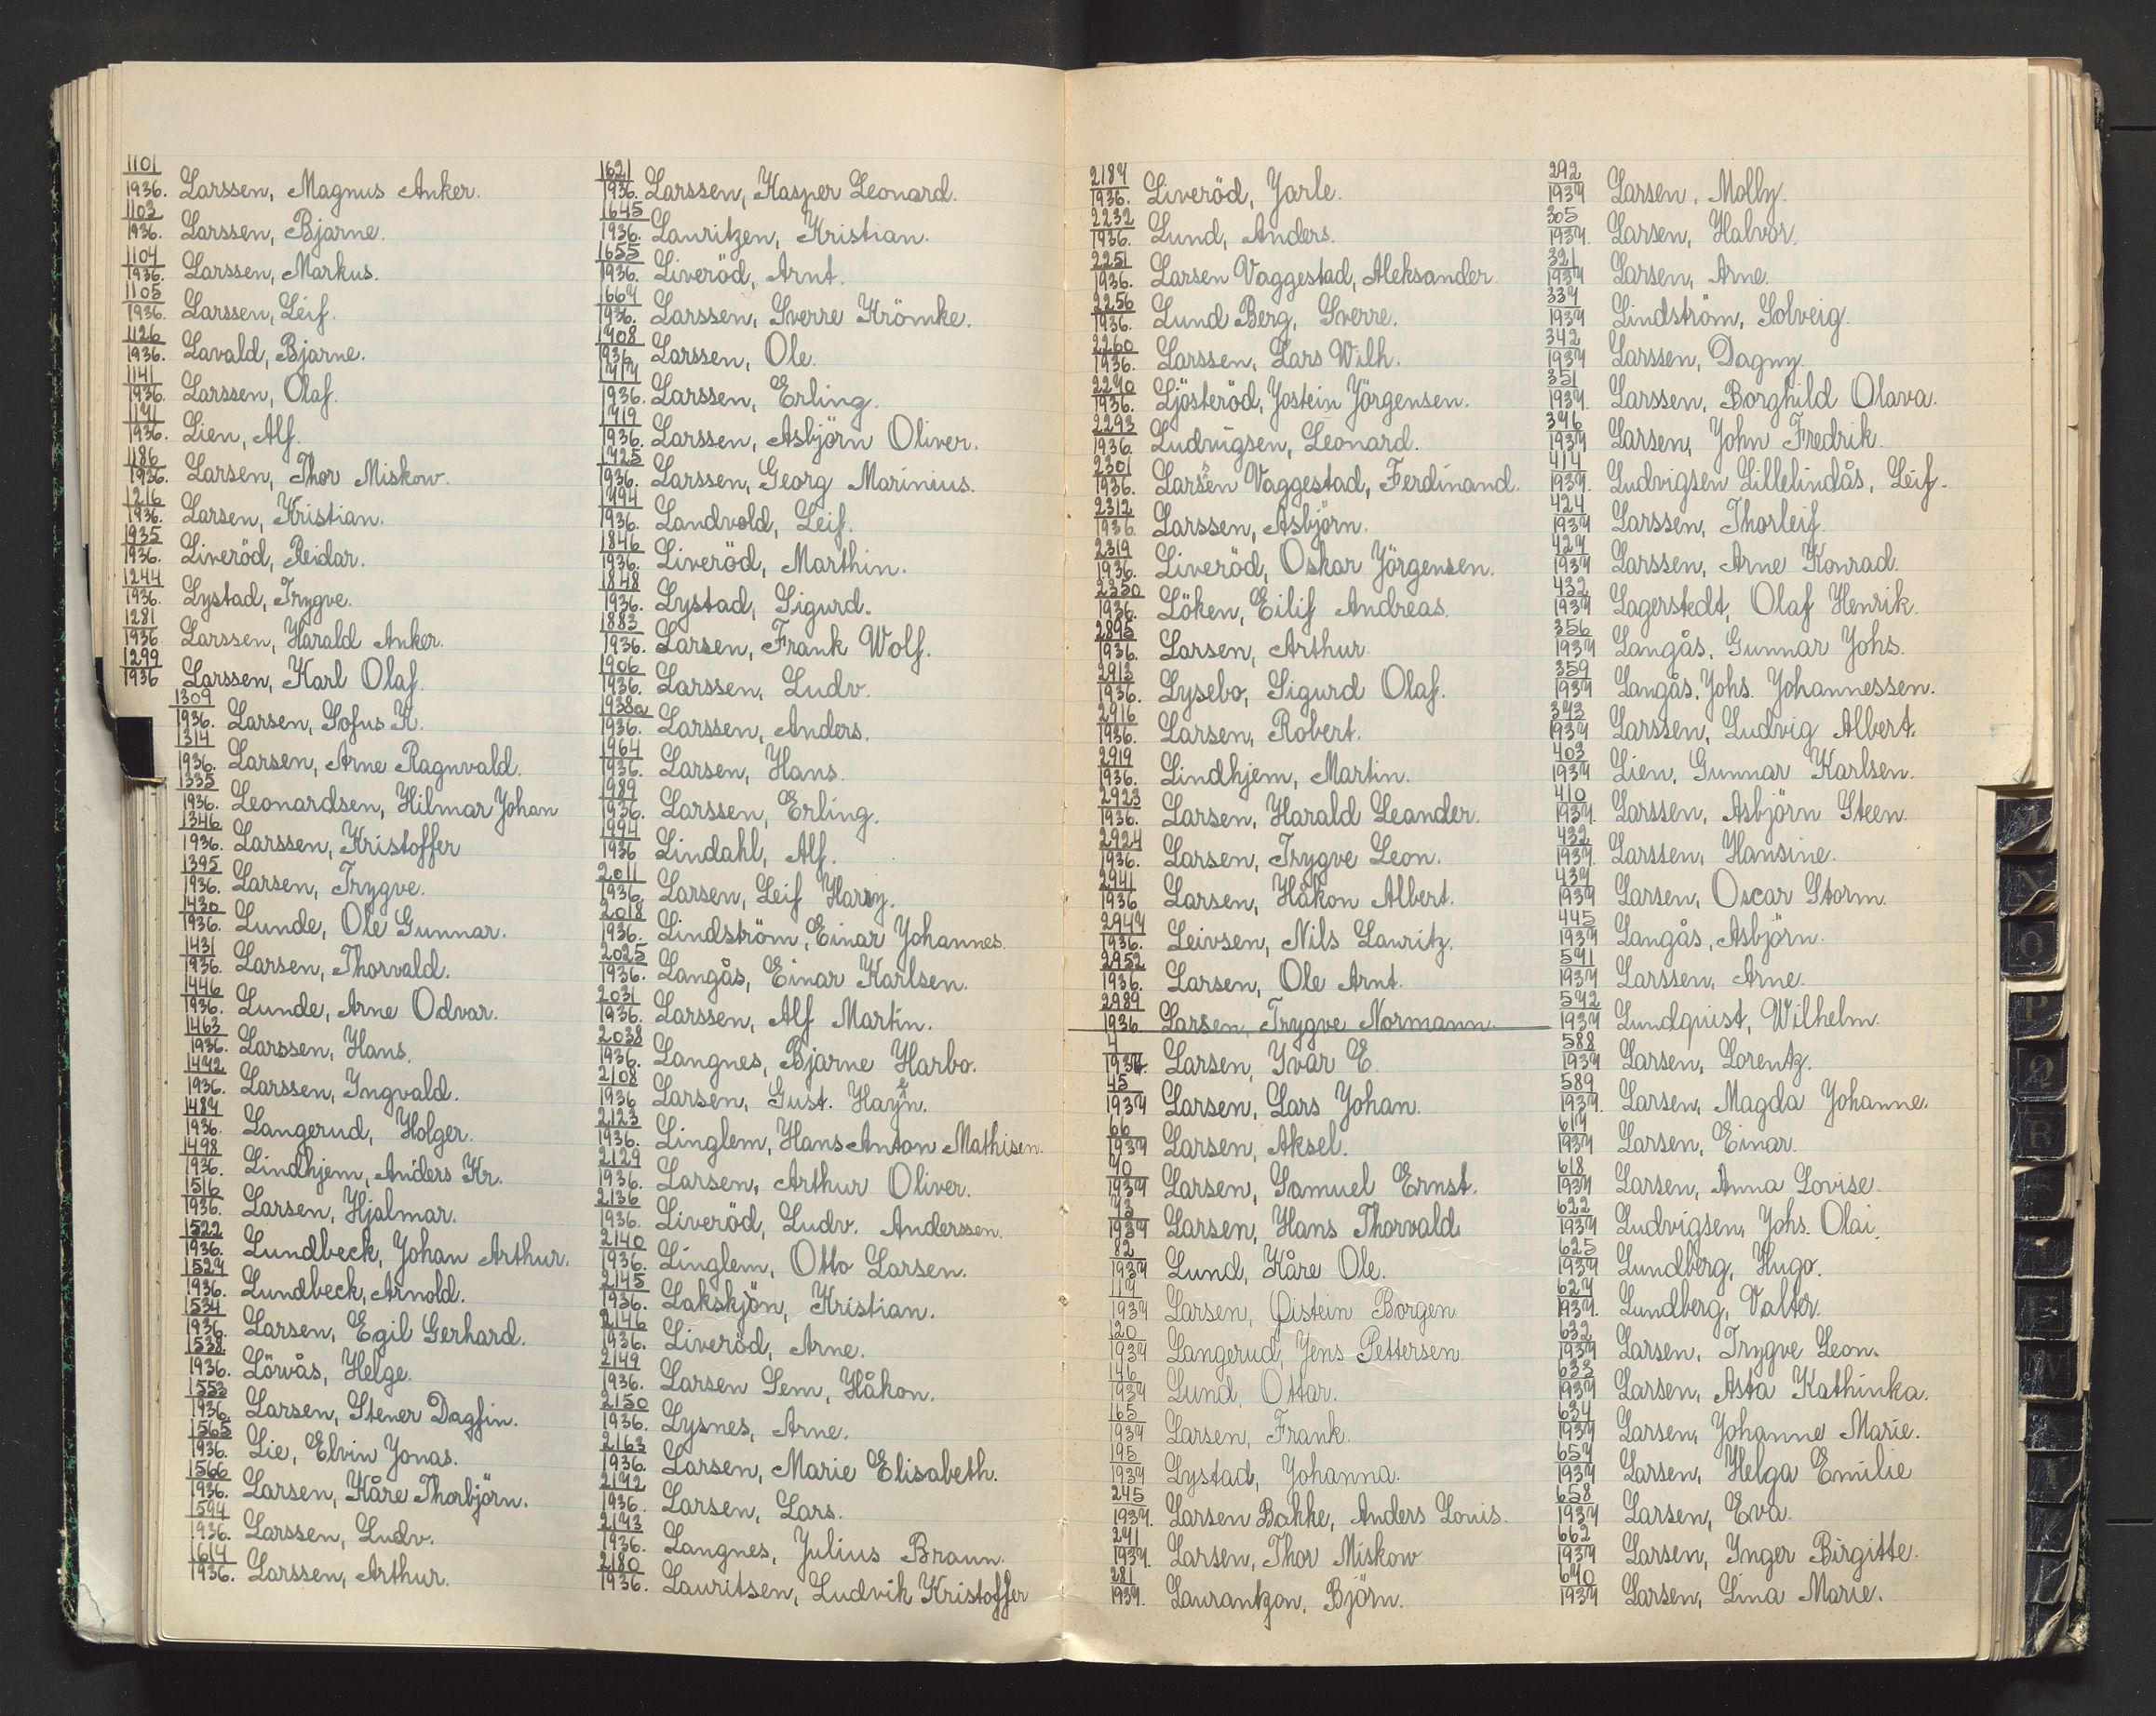 1101
1936. Larssen, Magnus Anker.
1103
1936. Larssen, Bjarne.
1104
1936. Larssen, Markus.
1105
1936. Larssen, Leif.
1126
1936. Lavald, Bjarne.
1141
1936. Larssen, Olaf.
1171
1936. Lien, Alf.
1186
1936. Larsen, Thor Miskow.
1216
1936. Larsen, Kristian.
1935
1936. Liveröd, Reidar.
1244
1936. Lystad, Trygve.
1281
1936 Larssen, Harald Anker.
1299
1936 Larssen, Karl Olaf.
1309
1936. Larsen, Sofus K.
1314
1936. Larsen, Arne Ragnvald.
1335
1936. Leonardsen, Hilmar Johan
1346
1936. Larssen, Kristoffer
1395
1936. Larsen, Trygve.
1430
1936. Lunde, Ole Gunnar.
1431
1936. Larsen, Thorvald.
1446
1936. Lunde, Arne Odvar.
1463
1936. Larssen, Hans.
1472
1936. Larssen, Ingvald.
1487
1936. Langerud, Holger.
1498
1936. Lindhjem, Anders Kr.
1516
1936. Larsen, Hjalmar.
1522
1936. Lundbeck, Johan Arthur.
1527
1936. Lundbeck, Arnold.
1534
1936. Larsen, Egil Gerhard.
1538
1936. Lörvås, Helge.
1553
1936. Larsen, Stener Dagfin.
1565
1936. Lie, Elvin Jonas.
1566
1936. Larsen, Kåre Thorbjörn.
1594
1936. Larssen, Ludv.
1617
1936. Larssen, Arthur.
1621
1936. Larssen, Kasper Leonard.
1645
1936. Lauritzen, Kristian.
1655
1936. Liveröd, Arnt.
1667
1936. Larssen, Sverre Krömke.
1708
1936 Larssen, Ole.
1717
1936. Larssen, Erling.
1719
1936. Larssen, Asbjörn Oliver.
1725
1936. Larssen, Georg Marinius.
1794
1936. Landvold, Leif.
1846
1936. Liveröd, Marthin.
1848
1936. Lystad, Sigurd.
1883
1936. Larsen, Frank Wolf.
1906
1936. Larssen, Ludv.
1938a
1936. Larssen, Anders.
1964
1936. Larsen, Hans.
1989
1936. Larssen, Erling.
1994
1936 Lindahl, Alf.
2011
1936. Larsen, Leif Harry.
2018
1936. Lindström, Einar Johannes.
2025
1936. Langås, Einar Karlsen.
2031
1936. Larssen, Alf Martin.
2038
1936. Langnes, Bjarne Harbo.
2108
1936 Larsen, Gust.
2123
1936. Linglem, Hans Anton Mathisen.
2129
1936. Larsen, Arthur Oliver.
2136
1936. Liveröd, Ludv. Anderssen.
2140
1936. Linglem, Otto Larsen.
2145
1936. Lakskjön, Kristian.
2146
1936. Liveröd, Arne.
2149
1936. Larsen Sem, Håkon.
2150
1936. Lysnes, Arne.
2163
1936. Larsen, Marie Elisabeth.
2172
1936. Larsen, Lars.
2173
1936. Langnes, Julius Braun.
2180
1936. Lauritsen, Ludvik Kristoffer
2187
1936. Liveröd, Jarle.
2232
1936. Lund, Anders.
2251
1936. Larsen Vaggestad, Aleksander
2256
1936. Lund Berg, Sverre.
2260
1936. Larssen, Lars Wilh.
2270
1936. Ljösteröd, Jostein Jörgensen.
2293
1936. Ludvigsen, Leonard.
2301
1936. Larsen Vaggestad, Ferdinand.
2312
1936 Larssen, Asbjörn.
2319
1936. Liveröd, Oskar Jörgensen.
2350
1936. Löken, Eilif Andreas.
2895
1936. Larsen, Arthur.
2913
1936. Lysebo, Sigurd Olaf.
2916
1936. Larsen, Robert.
2919
1936. Lindhjem, Martin.
2923
1936. Larsen, Harald Leander.
2924
1936. Larsen, Trygve Leon.
2941
1936 Larsen, Håkon Albert.
2947
1936. Leivsen, Nils Lauritz.
2952
1936. Larsen, Ole Arnt.
2989
1936 Larsen, Trygve Normann.
7
1937. Larsen, Ivar E.
45
1937 Larsen, Lars Johan.
66
1937 Larsen, Aksel.
70
1937 Larsen, Samuel Ernst.
73
1937 Larsen, Hans Thorvald
82
1937 Lund, Kåre Ole.
117
1937 Larsen, Öistein Borgen
120
1937 Langerud, Jens Pettersen.
146
1937 Lund, Ottar.
165
1937 Larsen, Frank.
195
1937 Lystad, Johanna.
245
1937. Larsen Bakke, Anders Louis.
271
1937. Larsen, Thor Miskow
281
1937. Laurantzon, Björn.
292
1937 Larsen, Molly.
305
1937. Larsen, Halvor.
321
1937 Larsen, Arne.
337
1937 Lindström, Solveig.
342
1937 Larssen, Dagny.
351
1937. Larssen, Borghild Olava.
396
1937 Larsen, John Fredrik.
414
1937. Ludvigsen Lillelindås, Leif.
424
1937 Larssen, Thorleif.
427
1937 Larssen, Arne Konrad.
432
1937 Lagerstedt, Olaf Henrik.
356
1937 Langås, Gunnar Johs.
359
1937 Langås, Johs. Johannessen.
393
1937 Larssen, Ludvig Albert.
403
1937 Lien, Gunnar Karlsen.
410
1937. Larssen, Asbjörn Steen.
432
1937. Larssen, Hansine.
437
1937 Larsen, Oscar Storm.
445
1937 Langås, Asbjörn.
571
1937 Larssen, Arne.
572
1937 Lundquist, Wilhelm.
588
1937 Larsen, Lorentz.
589
1937. Larsen, Magda Johanne.
617
1937 Larsen, Einar.
618
1937 Larsen, Anna Lovise.
622
1937 Ludvigsen, Johs. Olai.
625
1937 Lundberg, Hugo.
627
1937. Lundberg, Valter.
632
1937 Larsen, Trygve Leon.
633
1937 Larsen, Asta Kathinka.
634
1937 Larsen, Johanne Marie.
657
1937 Larsen, Helga Emilie
658
1937 Larsen, Eva.
662
1937 Larsen, Inger Birgitte.
670
1937 Larsen, Lina Marie.
N
O
P
Q
R